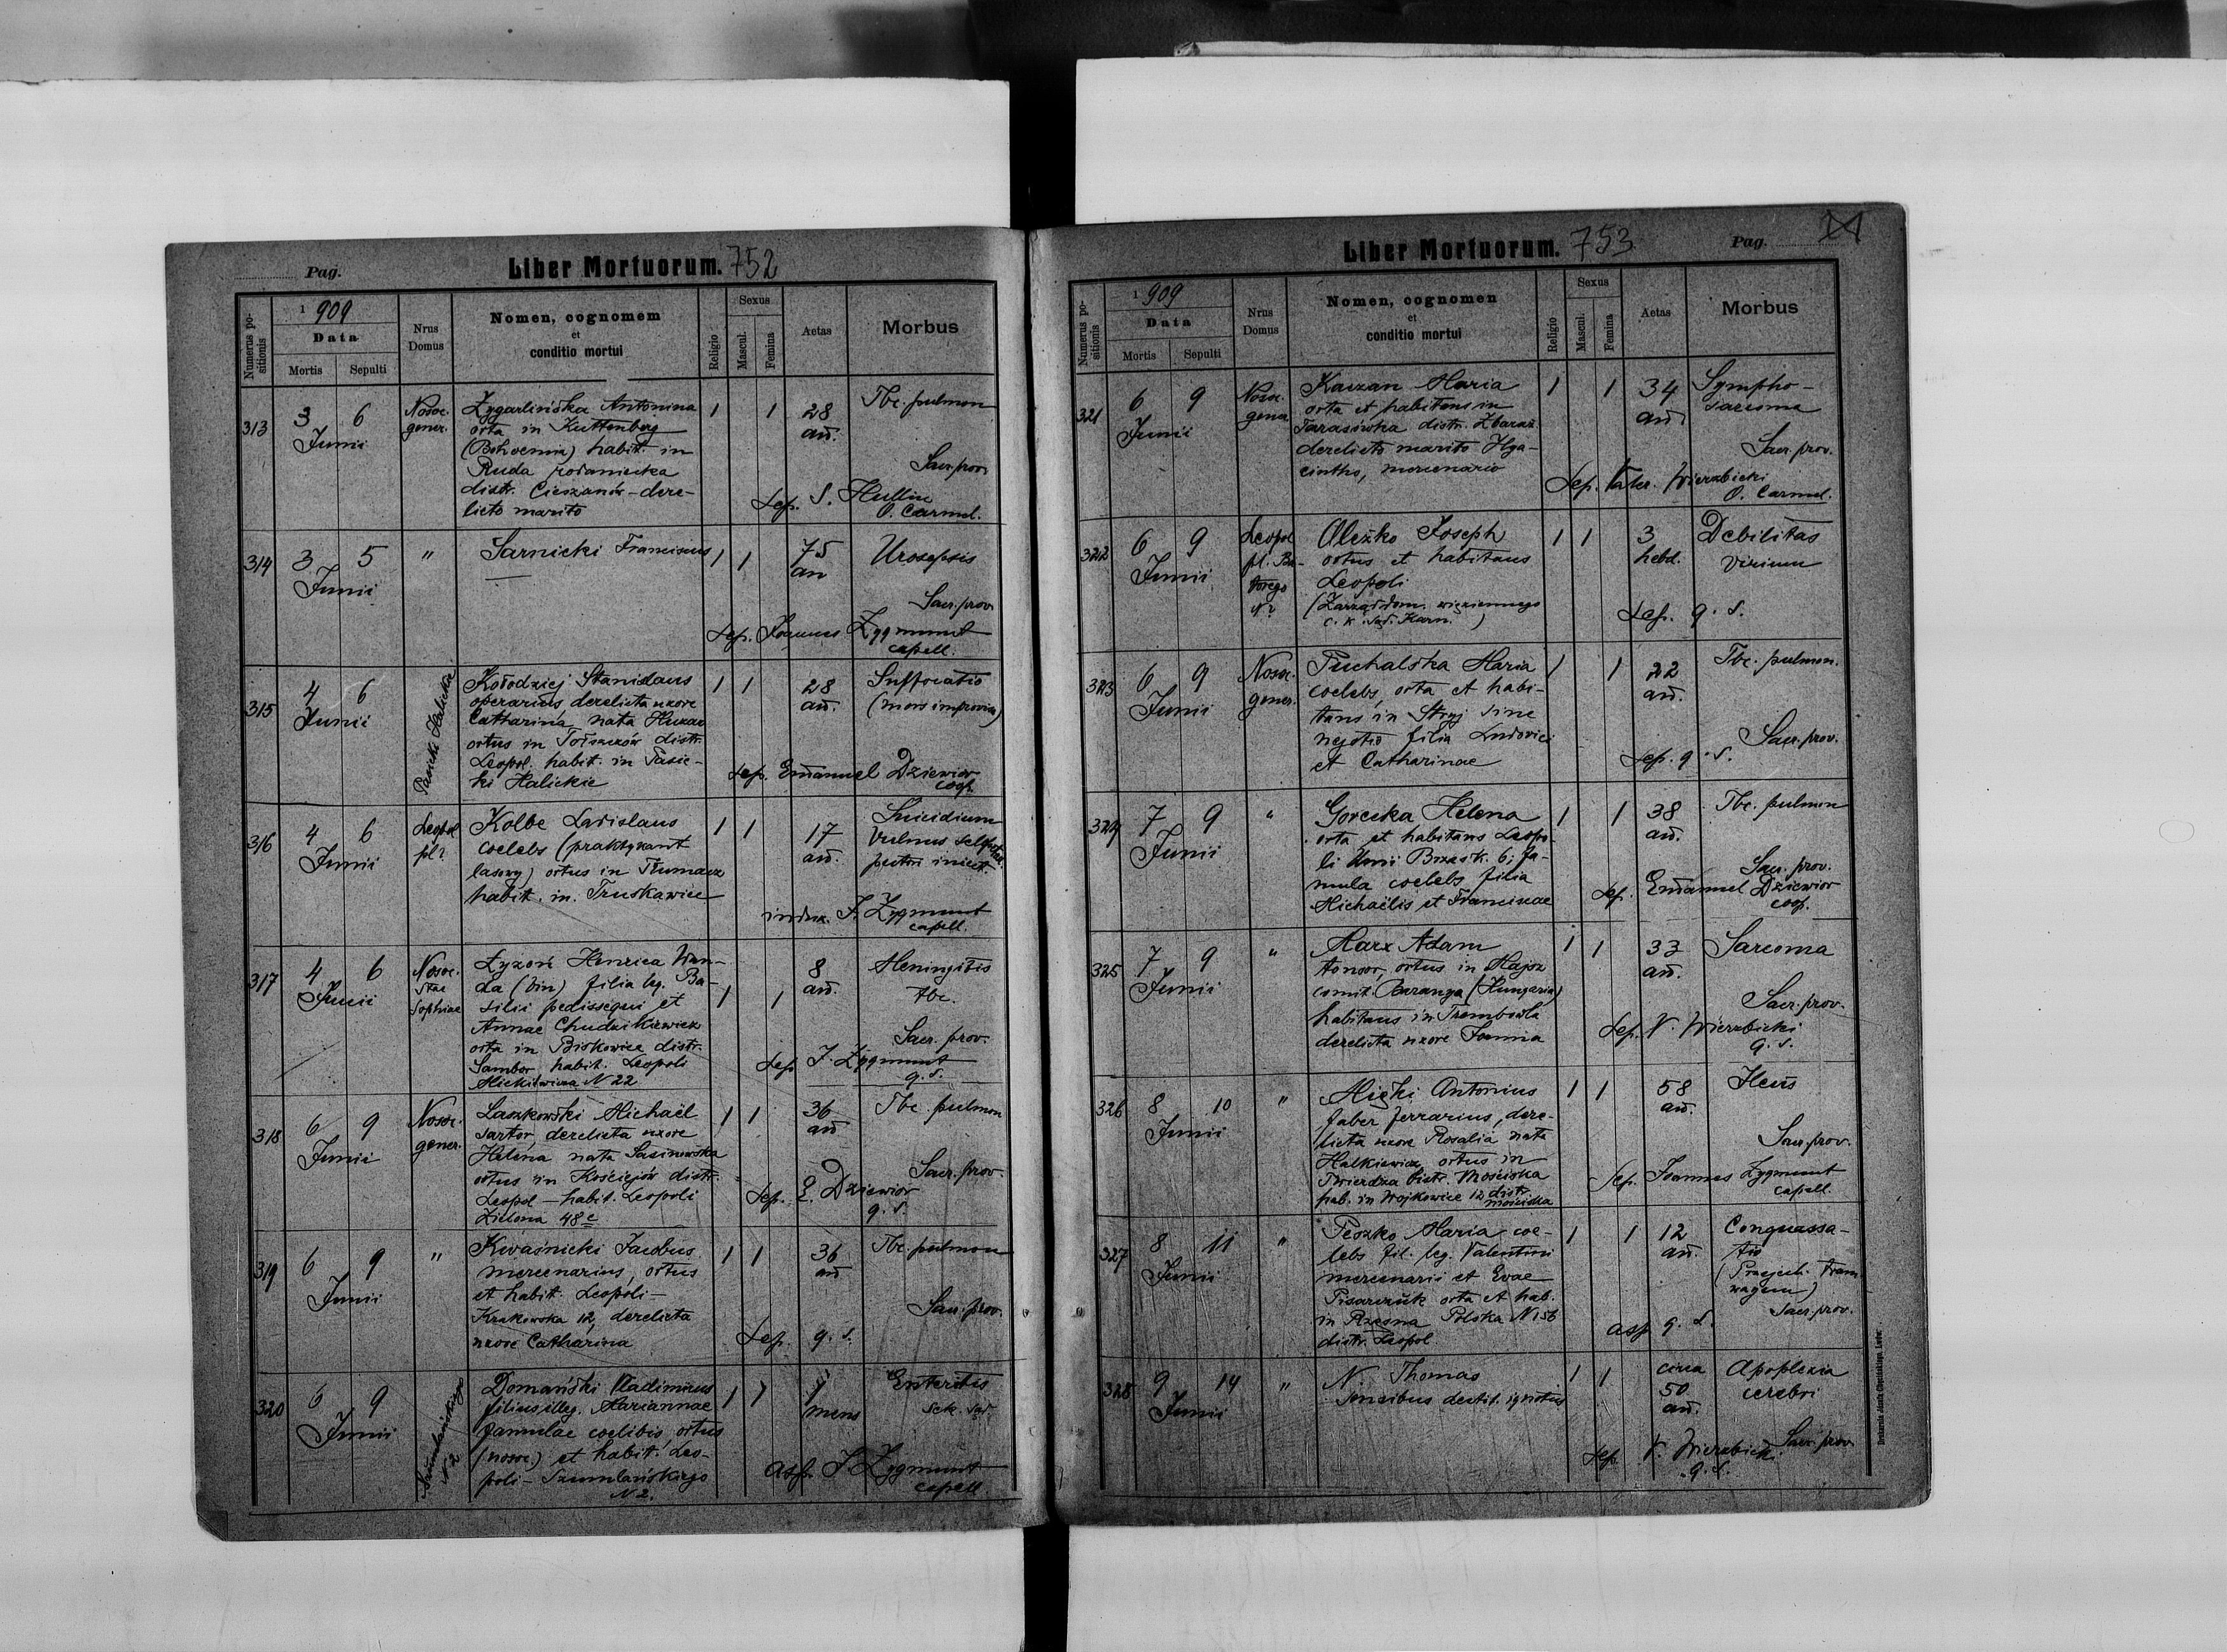 Pag.
Liber Mortuorum. 752
Numerus positionis
1 909
Data
Mortis
Sepulti
Nrus Domus
Nomen, cognomem
et
conditio mortui
Religio
Sexus
Mascul.
Femina
Aetas
Morbus
313
3 6
Junii
Nosoc.
gener.
Zygarlińska Antonina
orta in Kuttenberg
(Bohoemia) habit. in
Ruda rożaniecka
distr. Cieszanów - dere-
licto marito
1 1
28
an.
Tbc. pulmon
Sacr. prov.
Sep. S. Hullin
O. Carmel.
314
3 5
Junii
"
Sarnicki Franciscus
1 1
75
an
Urosepsis
Sacr. prov.
Sep. Joannes Zygmunt
capell.
315
4 6
Junii
Pasieki Halickie
Kołodziej Stanislaus
operarius derelicta uxore
Catharina nata Huzar
ortus in Tołszczów distr.
Leopol. habit. in Pasie-
ki Halickie
1 1
28
an.
Suffocatio
(mors improvisa)
Sep. Emanuel Dziewior
coop.
316
4 6
Junii
Leopol
pl ?
Kolbe Ladislaus
coelebs (praktykant
lasowy) ortus in Tłumacz
habit. in. Truskawice
1 1
17
an.
Suicidium
Vulnus sclopetar.
pectori iniect.
indux. J. Zygmunt
capell.
317
4 6
Junii
Nosoc.
Stae
Sophiae
Łyzoń Henrica Wan-
da (bin) filia leg. Ba-
silii pedissequi et
Annae Chudzikiewicz
orta in Biskowice distr.
Sambor habit. Leopoli
Mickiewicza N 22
1 1
8
an.
Meningitis
tbc.
Sacr. prov.
Sep J. Zygmunt
q. s.
318
6 9
Junii
Nosoc.
gener.
Laszkowski Michaël
sartor, derelicta uxore
Helena nata Sasinowska
ortus in Kościejów distr.
Leopol - habit. Leopoli
Zielona 48 c
1 1
36
an
Tbc. pulmon
Sacr. prov.
Sep. E. Dziewior
q. s.
319
6 9
Junii
"
Kwaśnicki Jacobus
mercenarius, ortus
et habit. Leopoli -
Krakowska 12, derelicta
uxore Catharina
1 1
36
an
Tbc. pulmon
Sacr. prov.
Sep. q. s.
320
6 9
Junii
Szumlańskiego
N 2
Domański Vladimirus
filius illeg. Mariannae
famulae coelibis, ortus
(nosoc.) et habit. Leo-
poli - Szumlańskiego
N 2.
1 1
1
mens
Enteritis
asp. J. Zygmunt
capell.
Liber Mortuorum. 753
Pag.
Numerus positionis
1 909
Data
Mortis
Sepulti
Nrus Domus
Nomen, cognomen
et
conditio mortui
Religio
Sexus
Mascul.
Femina
Aetas
Morbus
321
6 9
Junii
Nosoc.
gener
Kaczan Maria
orta et habitans in
Tarasówka distr. Zbaraż
derelicto marito Hya-
cintho, mercenario
1 1
34
an
Lympho-
sarcoma
Sacr. prov.
Sep. Valer. Wierzbicki
O. Carmel.
322
6 9
Junii
Leopol
pl. Ba-
torego
N ?
Oleżko Joseph
ortus et habitans
Leopoli
(Zarząd dom. więziennego
c. k. Sąd. Karn. )
1 1
3
hebd.
Debilitas
virium
Sep. q. s.
323
6 9
Junii
Nosoc.
gener.
Puchalska Maria
coelebs, orta et habi-
tans in Stryj sine
negotio filia Ludovici
et Catharinae
1 1
22
an.
Tbc. pulmon.
Sacr. prov.
Sep. q. s.
324
7 9
Junii
"
Gorecka Helena
orta et habitans Leopo-
li Unii Brzesk. 6; fa-
mula coelebs filia
Michaëlis et Franciscae
1 1
38
an.
Tbc. pulmon
Sacr. prov.
Sep. Emanuel Dziewior
coop.
325
7 9
Junii
"
Marx Adam
tonsor, ortus in Majsz
comit. Baranya (Hungaria)
habitans in Trembowla
derelicta uxore Joanna
1 1
33
an.
Sarcoma
Sacr. prov.
Sep. V. Wierzbicki
q. s.
326
8 10
Junii
"
Micki Antonius
faber ferrarius, dere-
licta uxore Rosalia nata
Halkiewicz ortus in
Twierdza distr. Mościska
hab. in Wojkowice 12 distr.
Mościska
1 1
58
an.
Ileus
Sacr. prov.
Sep. Joannes Zygmunt
capell.
327
8 11
Junii
"
Peszko Maria coe-
lebs fil. leg. Valentini
mercenarii et Evae
Pisarczuk orta et hab.
in Rzesna Polska N 156
distr. Leopol
1 1
12
an.
Conquassa-
tio
(Projecti. tram
wagum)
Sacr. prov.
asp q. s.
328
9 14
Junii
"
N. Thomas
sensibus destit. ignotus
1 1
circa
50
an.
Apoplexia
cerebri
Sacr. prov
Sep. V. Wierzbicki
q. s.